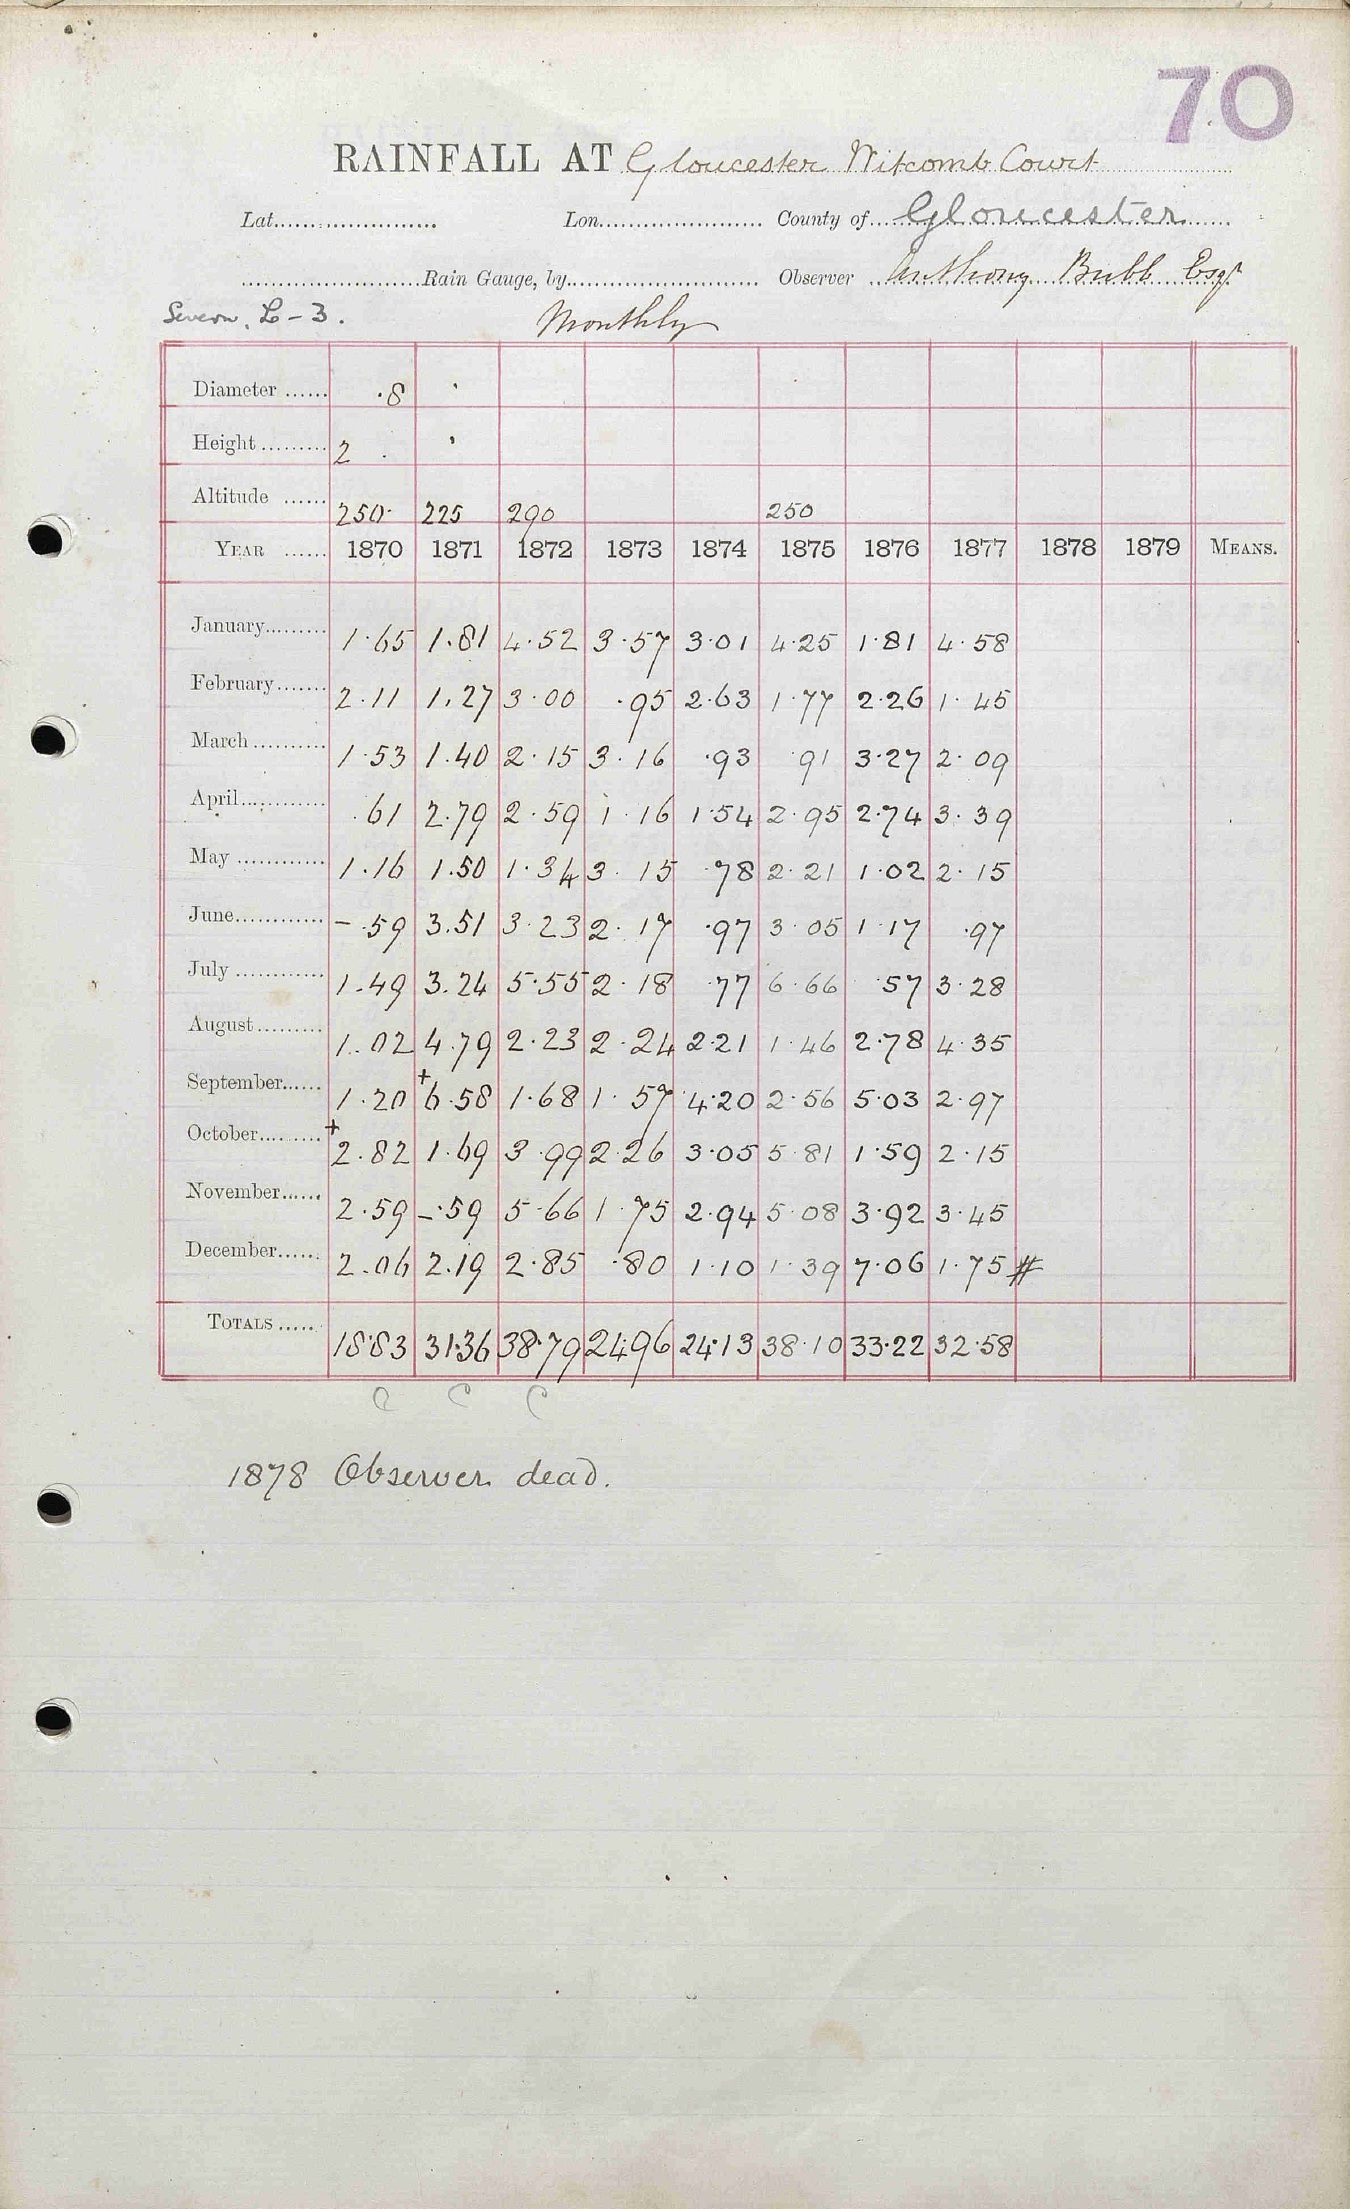 70
RAINFALL AT Gloucester Witcomb Court
Lat. Lon. County of Gloucester
Rain Gauge, by Observer Anthony Bubb Esqr
Severn. L-3. Monthly
Diameter .8
Height 2
Altitude 250 225 290 250
YEAR 1870 1871 1872 1873 1874 1875 1876 1877 1878 1879 MEANS.
January 1.65 1.81 4.52 3.57 3.01 4.25 1.81 4.58
February 2.11 1.27 3.00 .95 2.63 1.77 2.26 1.45
March 1.53 1.40 2.15 3.16 .93 .91 3.27 2.09
April .61 2.79 2.59 1.16 1.54 2.95 2.74 3.39
May 1.16 1.50 1.34 3.15 .78 2.21 1.02 2.15
June - .59 3.51 3.23 2.17 .97 3.05 1.17 .97
July 1.49 3.24 5.55 2.18 .77 6.66 .57 3.28
August 1.02 4.79 2.23 2.24 2.21 1.46 2.78 4.35
September 1.20 + 6.58 1.68 1.57 4.20 2.56 5.03 2.97
October + 2.82 1.69 3.99 2.26 3.05 5.81 1.59 2.15
November 2.59 - .59 5.66 1.75 2.94 5.08 3.92 3.45
December 2.06 2.19 2.85 .80 1.10 1.39 7.06 1.75 #
TOTALS 18.83 31.36 38.79 24.96 24.13 38.10 33.22 32.58
C C C
1878 Observer dead.